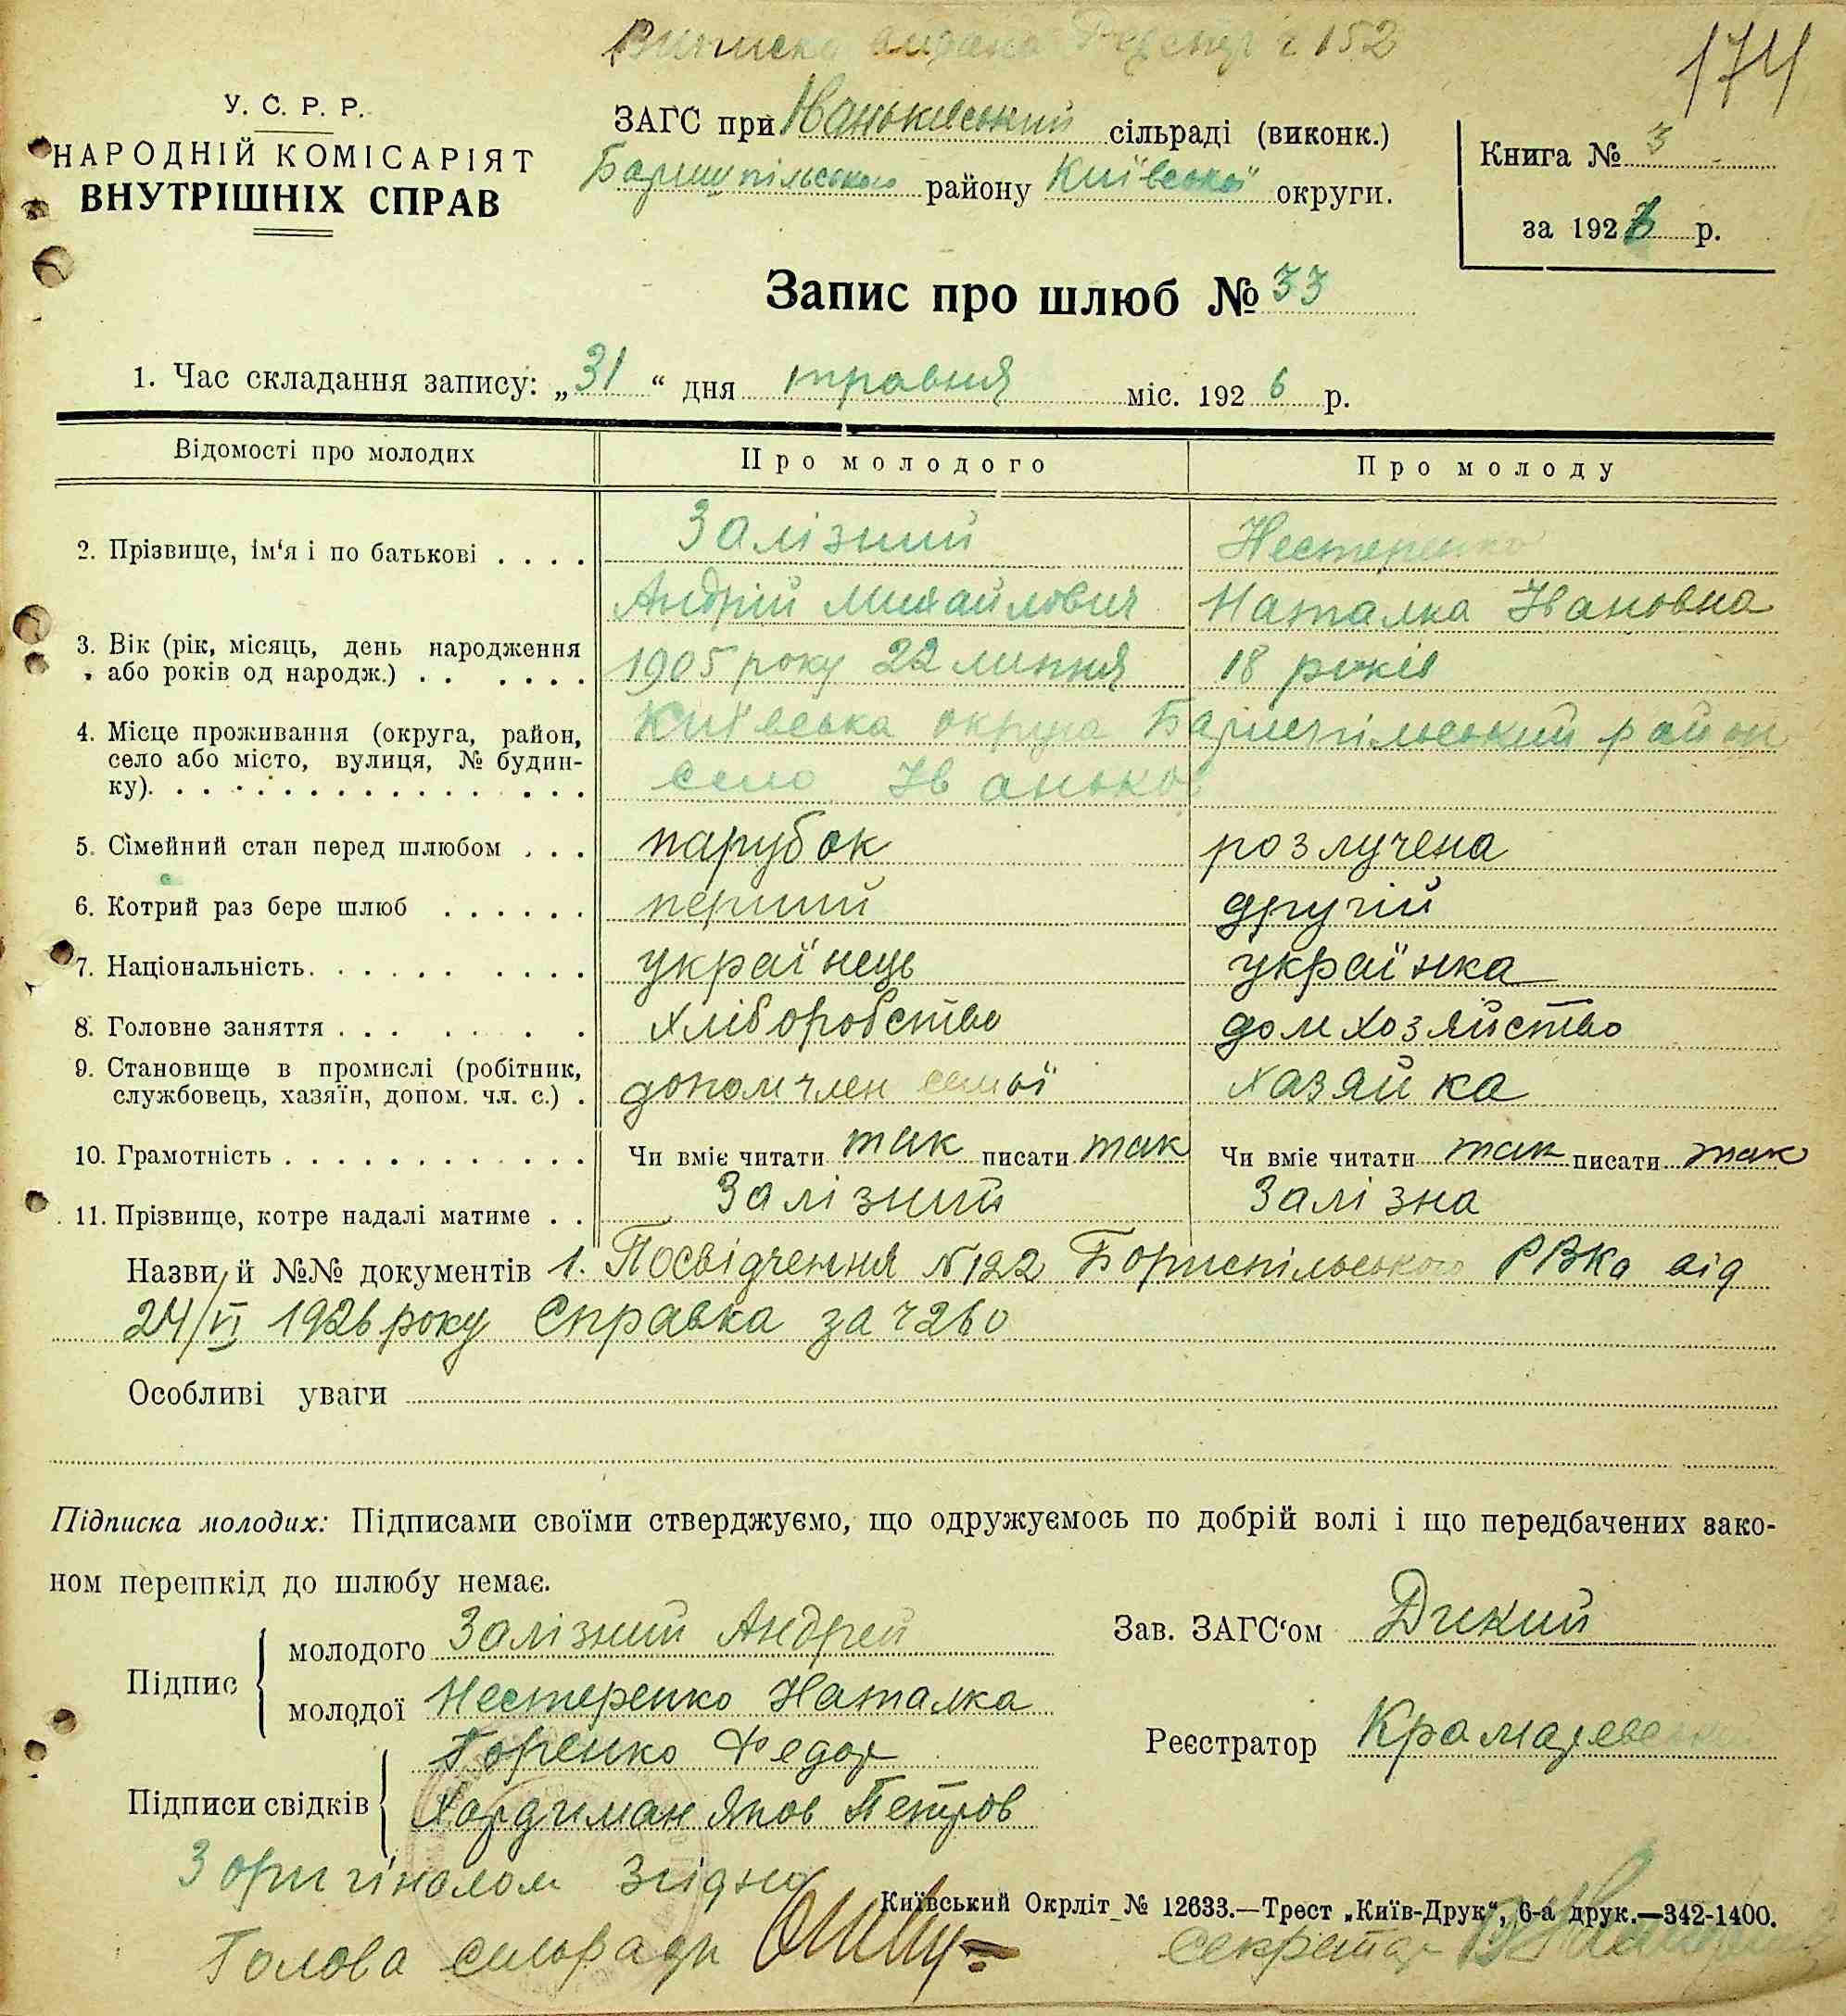 Виписка видана Реєстр № 152
174
У. С. Р. Р.
НАРОДНІЙ КОМІСАРІЯТ
ВНУТРІШНІХ СПРАВ
ЗАГС при Іваньківський сільраді (виконк.)
Баришпільського району Київської округи.
Книга № 3
за 1926 р.
Запис про шлюб № 33
1. Час складання запису: „31“ дня травня міс. 1926 р.
Відомості про молодих
Про молодого
Про молоду
2. Прізвище, ім‘я і по батькові . . . .
Залізний
Андрій Михайлович
Нестеренко
Наталка Івановна
3. Вік (рік, місяць, день народження
або років од народж.) . . . . . .
1905 року 22 липня
18 років
4. Місце проживання (округа, район,
село або місто, вулиця, № будин-
ку). . . . . . . . . . . . . . . .
Київська округа Баришпільський район
село Іваньков
5. Сімейний стан перед шлюбом . . .
парубок
розлучена
6. Котрий раз бере шлюб . . . . . .
перший
другій
7. Національність. . . . . . . . . .
українець
українка
8. Головне заняття . . . . . . . .
хліборобство
домхозяйство
9. Становище в промислі (робітник,
службовець, хазяїн, допом. чл. с.) .
допом член семьї
хазяйка
10. Грамотність . . . . . . . . . . . . .
Чи вміє читати так писати так
Чи вміє читати так писати так
11. Прізвище, котре надалі матиме . .
Залізний
Залізна
Назви й №№ документів 1. Посвідчення №122 Бориспільського РВКа від
24/VI 1926 року Справка за ч 260
Особливі уваги
Підписка молодих: Підписами своїми стверджуємо, що одружуємось по добрій волі і що передбачених зако-
ном перешкід до шлюбу немає.
Підпис
молодого Залізний Андрей
молодої Нестеренко Наталка
Зав. ЗАГС‘ом Дикий
Реєстратор
Підписи свідків
Горенко Федор
Яков Петров
З оригіналом згідно
Київський Окрліт № 12633.—Трест „Київ-Друк“, 6-а друк.—342-1400.
Голова сільради
секретар